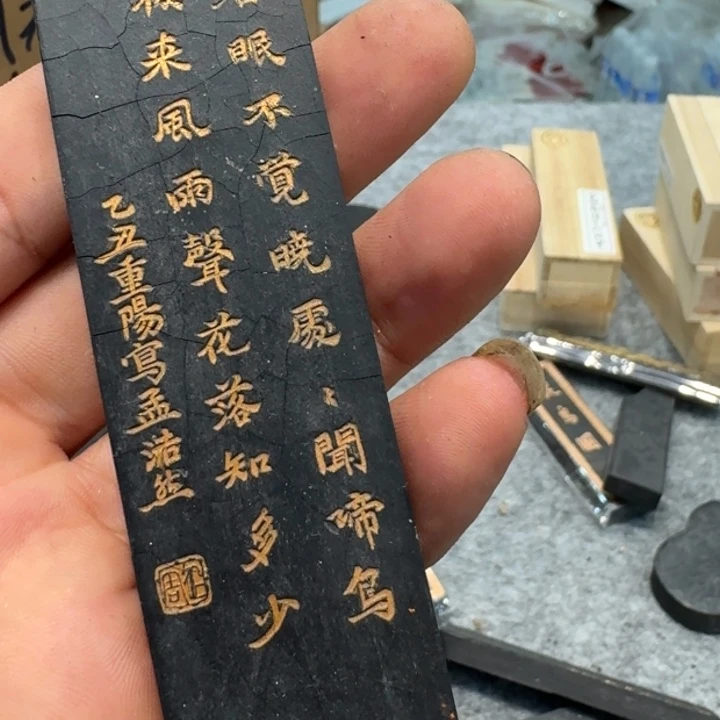 春眠不覚暁處〻聞啼鳥
夜来風雨聲花落知多少
乙丑重陽寫孟浩然